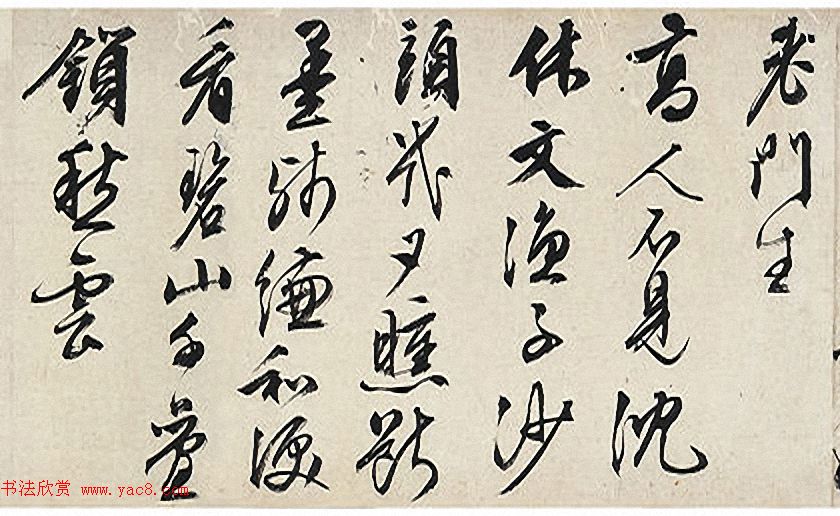 老門生
高人不見沈
休文漁子沙
頭幾夕曛斷
墨殘縑和淚
看碧山千疊
鎖愁雲
书法欣赏 www.yac8.com